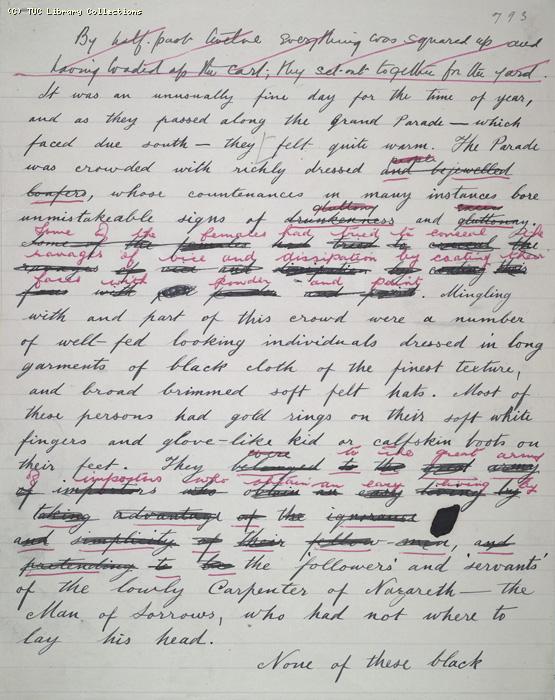 (C) TUC Library Collections
793
By half-past twelve everything was squared up and
having loaded up the cart, they set out together for the yard.
It was an unusually fine day for the time of year,
and as they passed along the Grand Parade — which
faced due south — they felt quite warm. The Parade
people
was crowded with richly dressed and bejewelled
loafers, whose countenances in many instances bore
gluttony
unmistakeable signs of drunkenness and gluttony.
Some of the females had tried to conceal the
some of the females had tried to conceal the
ravages of vice and dissipation by coating their
ravages of vice and dissipation by coating their
faces with powder and paint
faces with powder and paint. Mingling
with and part of this crowd were a number
of well-fed looking individuals dressed in long
garments of black cloth of the finest texture,
and broad brimmed soft felt hats. Most of
these persons had gold rings on their soft white
fingers and glove-like kid or calfskin boots on
were to the great army
their feet. They belonged to the great army
of impostors who obtain an easy living by
of impostors who obtain an easy living by
taking advantage of the ignorance
and simplicity of their fellow men, and
pretending to be the 'followers' and 'servants'
of the lowly Carpenter of Nazareth — the
Man of Sorrows, who had not where to
lay his head.
None of these black